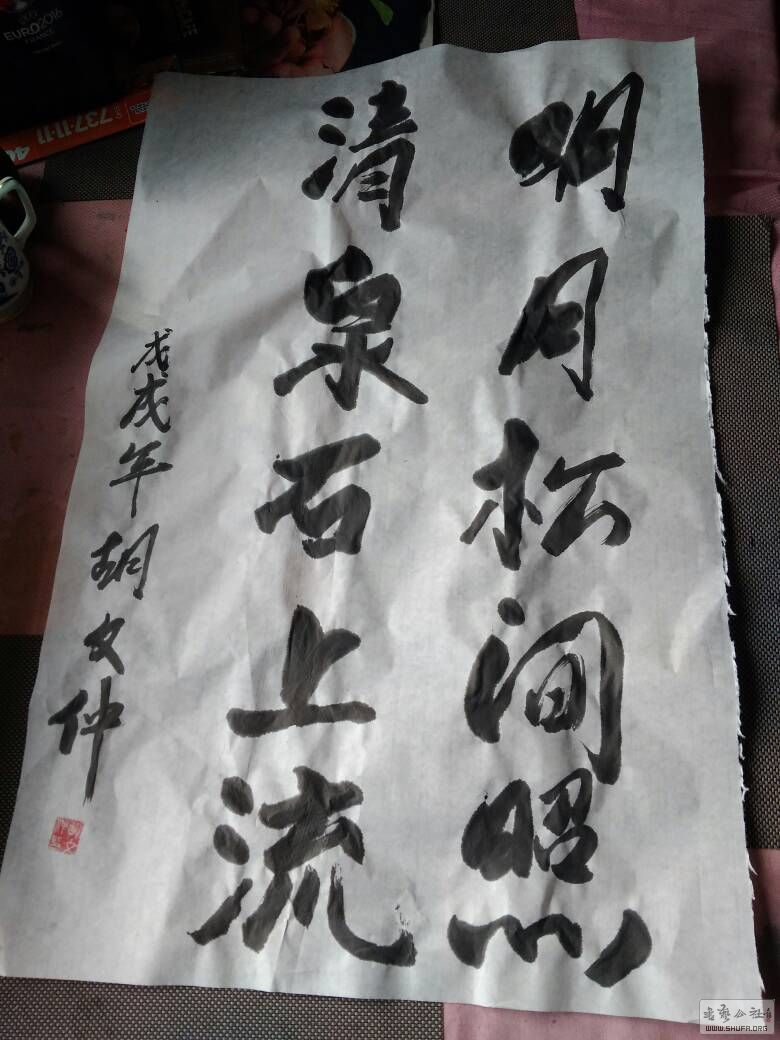 明月松间照
清泉石上流
戊戌年 胡文仲
EURO2016
FRANCE
737·11·11
书艺公社
WWW.SHUFA.ORG